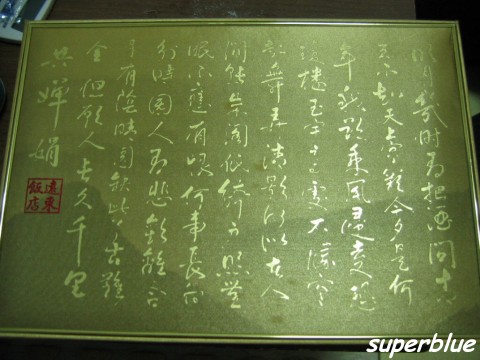 明月幾時有把酒問青
天不知天上宮闕今夕是何
年我欲乘風歸去又恐
瓊樓玉宇高處不勝寒
起舞弄清影何似在人
間轉朱閣低綺戶照無
眠不應有恨何事長向
別時圓人有悲歡離合
月有陰晴圓缺此事古難
全但願人長久千里
共嬋娟
遠東
飯店
superblue